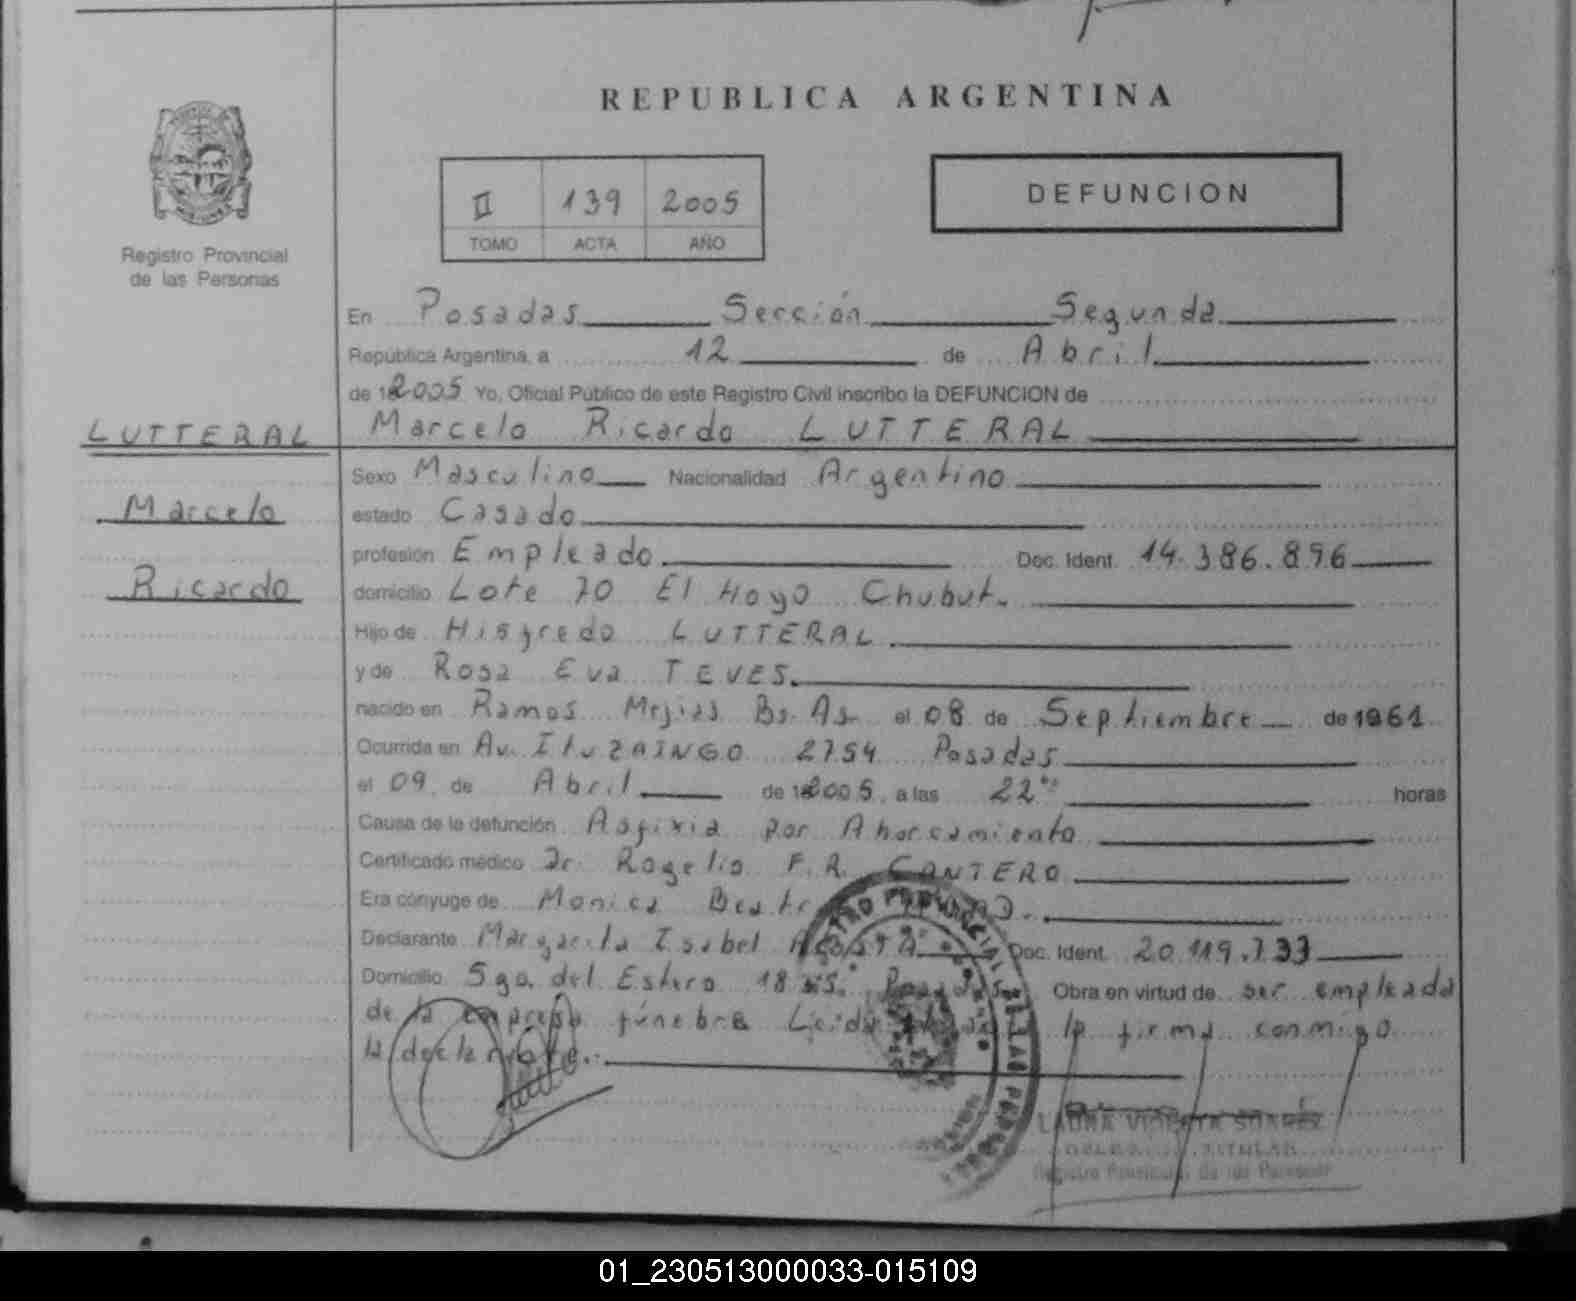 REPUBLICA ARGENTINA
II 139 2005
TOMO ACTA AÑO
DEFUNCION
Registro Provincial
de las Personas
En Posadas Sección Segunda
República Argentina, a 12 de Abril
de 2005 Yo, Oficial Público de este Registro Civil inscribo la DEFUNCION de
LUTTERAL
Marcelo Ricardo LUTTERAL
Sexo Masculino Nacionalidad Argentino
Marcelo
estado Casado
profesión Empleado Doc. Ident. 14.386.896
Ricardo
domicilio Lote 70 El Hoyo Chubut.
Hijo de Hisfredo LUTTERAL
y de Rosa Eva TEVES.
nacido en Ramos Mejias Bs. As. el 08 de Septiembre de 1961
Ocurrida en Av. ItuzAINGO 2754 Posadas
el 09 de Abril de 2005, a las 22 horas
Causa de la defunción Asfixia por Ahorcamiento
Certificado médico Dr. Rogelio F. R. CANTERO
Era cónyuge de Monica
Declarante Margarita Isabel ACOSTA Doc. Ident. 20.119.733
Domicilio Sgo. del Estero Posadas Obra en virtud de ser empleada
de la empresa fúnebre la firma conmigo
la declarante.
LAURA
TITULAR
Registro Provincial de las Personas
01_230513000033-015109